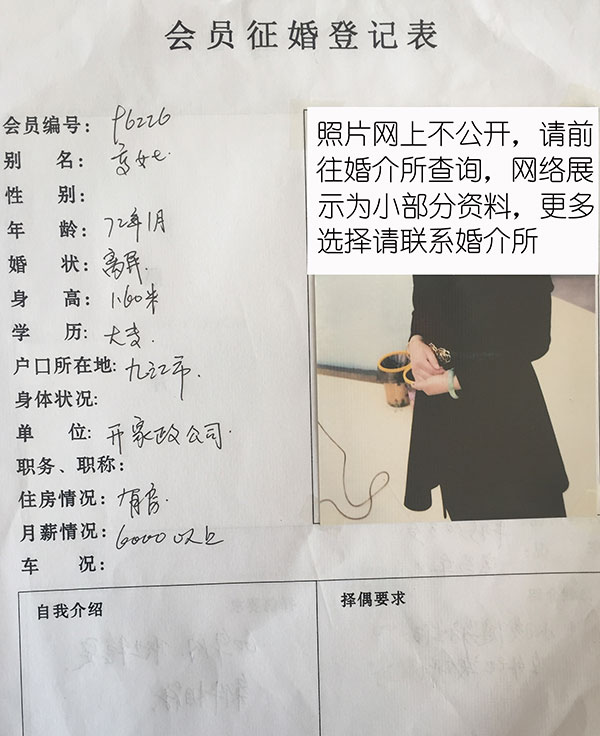 会员征婚登记表
会员编号: 96226
别 名: 高女士
性 别:
年 龄: 72年1月
婚 状: 离异.
身 高: 1.60米
学 历: 大专
户口所在地: 九江市.
身体状况:
单 位: 开家政公司.
职务、职称:
住房情况: 有房.
月薪情况: 6000以上
车 况:
照片网上不公开，请前
往婚介所查询，网络展
示为小部分资料，更多
选择请联系婚介所
自我介绍
择偶要求